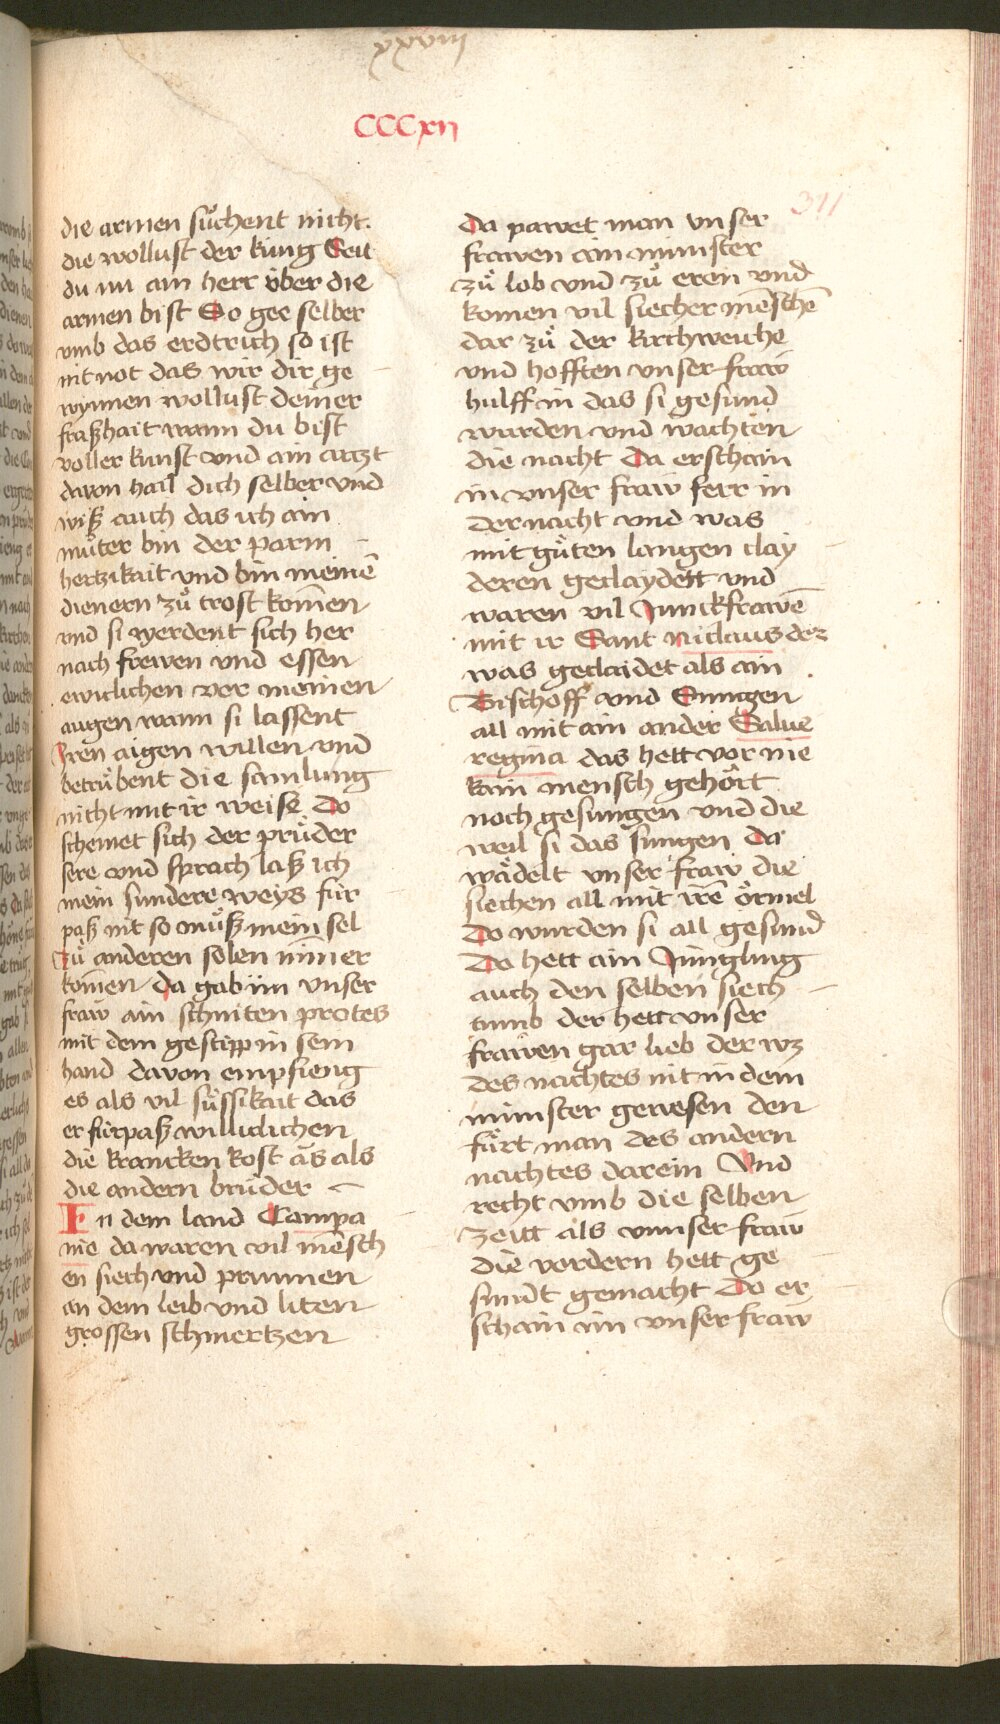 xxviii
CCCxii
311
die armen sůchent nicht.
die wollust der kung Seit
du nu ain herr über die
armen bist So gee selber
vmb das erdtrich so ist
nit not das wir dir ge
wynnen wollust deiner
fraßhait wann du bist
voller kunst vnd ain artzt
davon hail dich selber vnd
wiß auch das ich ain
můter bin der parm
hertzikait vnd bin meinē
dienern zů trost komen
vnd si werdent sich her
nach frewen vnd essen
ewiclichen vor meinen
augen wann si lassent
Iren aigen willen vnd
betrübent die samlung
nicht mit ir weise Do
schemet sich der průder
sere vnd sprach laß ich
mein sundere weys für
paß nit so můß mein sel
Zů anderen solen nim̄er
komen da gab im vnser
fraw ain schniten protes
mit dem gestüpp in sein
hand davon empfieng
es als vil sůssikait das
er fürpaß williclichen
die krancken kost äs als
die andern brüder
In dem land Campa
nie da waren vil mēsch
en siech vnd prunnen
an dem leib vnd liten
grossen schmertzen
Da pawet man vnser
frawen ain munster
zů lob vnd zů eren vnd
komen vil siecher mēschē
dar zů der kirchweiche
vnd hofften vnser fraw
hulff in das si gesund
wurden vnd wachten
die nacht Da erschain
in vnser fraw ferr in
der nacht vnd was
mit gůten langen clay
deren geclaydett vnd
waren vil Junckfrawē
mit ir Sant niclaus der
was geclaidet als ain
Bischoff vnd Sungen
all mit ain ander Salue
regina das hett vor nie
kain mensch gehört
noch gesungen vnd die
weil si das sungen Da
wädelt vnser fraw die
siechen all mit irē örmel
Do wurden si all gesund
Do hett ain Jüngling
auch den selben siech
tumb der hett vnser
frawen gar lieb der wz
des nachtes nit in dem
münster gewesen den
fürt man des andern
nachtes darein Vnd
recht vmb die selben
zeitt als vnnser fraw
die vordern hett ge
sundt gemacht Do er
schain im vnser fraw